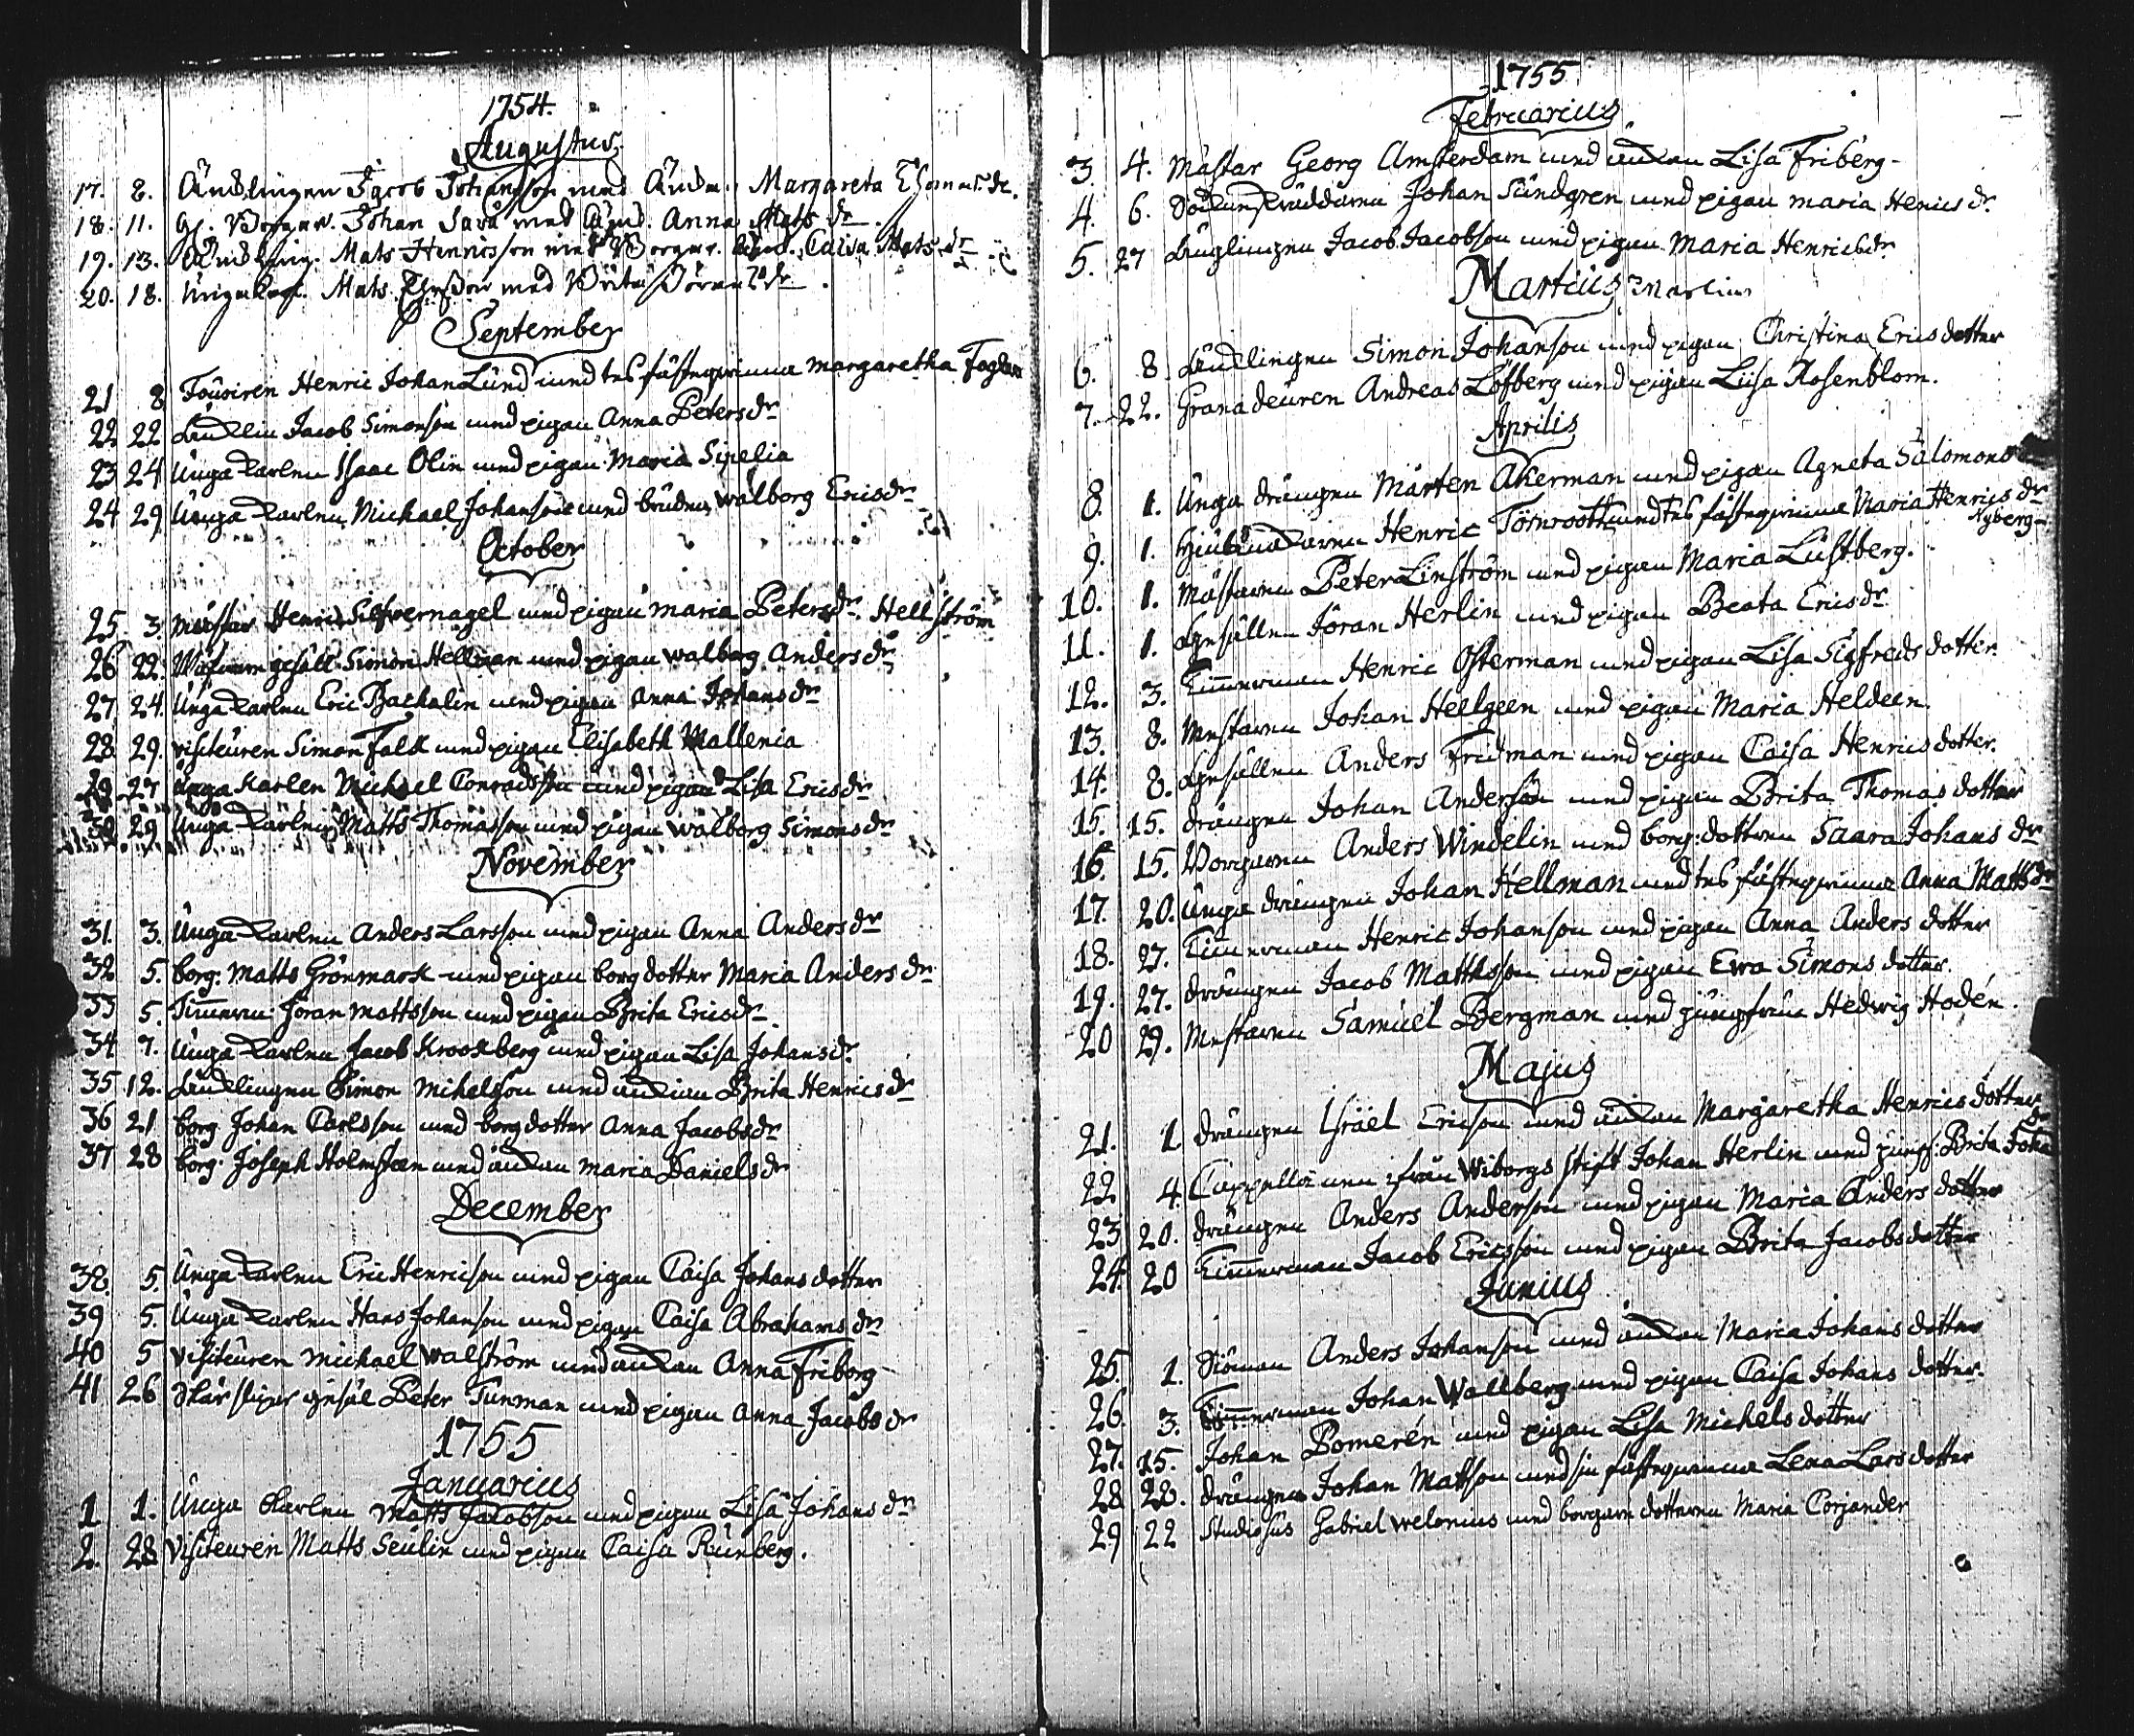 1754.
Augustus
17. 8. Änclingen Jacob Johansson med Änck. Margareta Thomæ dr.
18. 11. Gl. Borgar. Johan Sara med Anna Mats dr
19. 13. Mats Henricsson med Borgar. Caisa Mats dr
20. 18. Unga Karl. Mats med
September
21 8 Henric Johan Lund med des fästeqvinna Margaretha
22 22 Encklin Jacob Simonson med pigan Anna Petersdr
23 24 Unga Karlen Isaac Olin med pigan Maria Sipelia
24 29 Unga Karlen Michael Johanson med Walborg Ericsdr
October
25 3. Mästar Henric Silfvernagel med pigan Maria Petersdr. Hellström
26 22. gesäll Simon Hellman med pigan Walborg Andersdr
27 24. Unga Karlen Eric Backalin med pigan Anna Johansdr
28 29. Visiteuren Simon Falk med pigan Elisabeth Wallenia
29 27 Unga Karlen Michael Conradsson med pigan Lisa Ericsdr
30 29 Unga Karlen Matts Thomasson med pigan Walborg Simonsdr
November
31. 3. Unga Karlen Anders Larsson med pigan Anna Andersdr
32 5. borg. Matts Grönmark med pigan borgdotter Maria Anders dr.
33 5. Timmerm. Jöran Mattsson med pigan Brita Ericsdr.
34 7. Unga Karlen Jacob Krookberg med pigan Lisa Johansdr.
35 12. Encklingen Simon Mihelsson med änckian Brita Henricsdr
36 21 borg Johan Carlsson med borgdotter Anna Jacobsdr
37 28 borg. Joseph Holmsteen med änckan Maria Danielsdr
December
38. 5. Unga Karlen Eric Henricson med pigan Caisa Johansdotter
39 5. Unga Karlen Hans Johanson med pigan Caisa Abrahams dr
40 5 Visiteuren Michael Walström med änckan Anna Friborg
41 26 Skarslipar gesäl Peter Tunman med pigan Anna Jacobs dr
1755
Januarius
1 1. Unga Karlen Matts Jacobson med pigan Lisa Johansdr
2. 28 Visiteuren Matts Seulin med pigan Caisa Runberg.
1755
Februarius
3 4. Mästar Georg Amsterdam med änckan Lisa Friberg
4. 6. Johan Sundgren med pigan Maria Henrics dr
5. 27 Änglingen Jacob Jacobson med pigan Maria Henricsdr
Martius Martius
6. 8. Encklingen Simon Johanson med pigan Christina Ericsdotter
7. 22. Granadeuren Andreas Löfberg med pigan Lisa Rosenblom.
Aprilis
8. 1. Unga drängen Mårten Akerman med pigan Agneta Salomons
9. 1. Henric Törnrooth med des fästeqvinna Maria Henrics dr
Nyberg
10. 1. Mästaren Peter Linström med pigan Maria Lustberg.
11. 1. Gesällen Jöran Herlin med pigan Beata Ericsdr
12. 3. Timmerman Henric Osterman med pigan Lisa Sigfredsdotter.
13. 8. Mestaren Johan Heelgeen med pigan Maria Heldeen.
14. 8. Gesällen Anders Fridman med pigan Caisa Henricsdotter.
15. 15. Drängen Johan Anderson med pigan Brita Thomas dotter
16. 15. Borgaren Anders Windelin med borg: dottren Saara Johans dr
17. 20. Unga drängen Johan Hellman med des fästeqvinna Anna Matts dr
18. 27. Timmerman Henric Johanson med pigan Anna Anders dotter
19. 27. Drängen Jacob Mattsson med pigan Ewa Simons dotter.
20 29. Mestaren Samuel Bergman med jungfrun Hedwig Hodén.
Majus
21. 1. Drängen Israel Ericson med änckan Margaretha Henricsdotter
22 4. från Wiborgs stift Johan Herlin med jungf: Brita Joha
dr
23 20. Drängen Anders Anderson med pigan Maria Anders dotter
24. 20 Timmerman Jacob Ericsson med pigan Brita Jacobsdotter
Junius
25. 1. Siöman Anders Johanson med änckan Maria Johans dotter
26. 3. Timmerman Johan Wallberg med pigan Caisa Johans dotter.
27. 15. Johan Bomerén med pigan Lisa Michelsdotter
28 22. Drängen Johan Mattson med sin fästeqvinna Lena Larsdotter
29 22 Studiosus Gabriel Welonius med borgare dotteren Maria Corjander